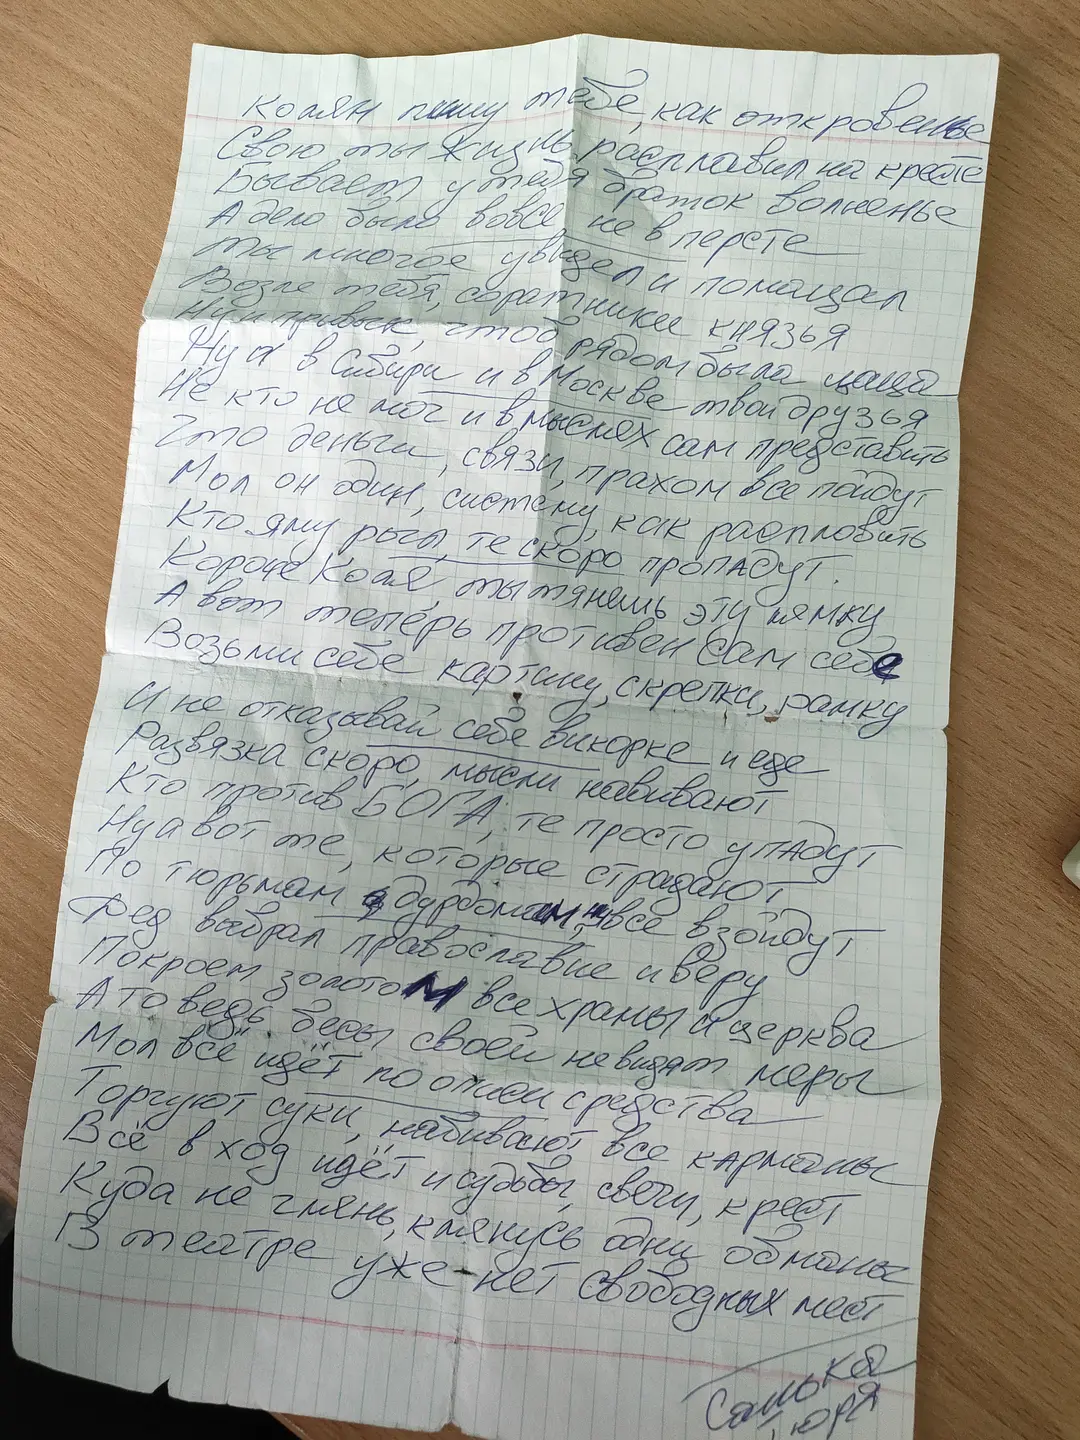 Колян пишу тебе, как откровенье
Свою ты жизнь расплавил на кресте
Бывает у тебя браток волненье
А дело было вовсе не в персте
Ты многое увидел и помацал
Возле тебя, соратники князья
Ну и привык, чтоб рядом была цаца
Ну а в Сибири и в Москве твои друзья
Не кто не мог и в мыслях сам представить
Что деньги, связи, прахом все пойдут
Мол он один, систему, как распловить
Кто яму рыл, те скоро пропадут.
Короче Коля, ты тянешь эту лямку
А вот теперь противен сам себе
Возьми себе картину, скрепки, рамку
И не отказывай себе в икорке и еде
Развязка скоро, мысли навивают
Кто против БОГА, те просто упадут
Ну а вот те, которые страдают
По тюрьмам дурдомам, все взойдут
Фед выбрал православие и веру
Покроем золотом все храмы и церква
А то ведь бесы своей не видят меры
Мол всё идёт по описи средства
Торгуют суки, набивают все карманы
Всё в ход идёт и судьбы, свечи, крест
Куда не глянь, клянусь одни обманы
В театре уже нет свободных мест
Санька
Тюря